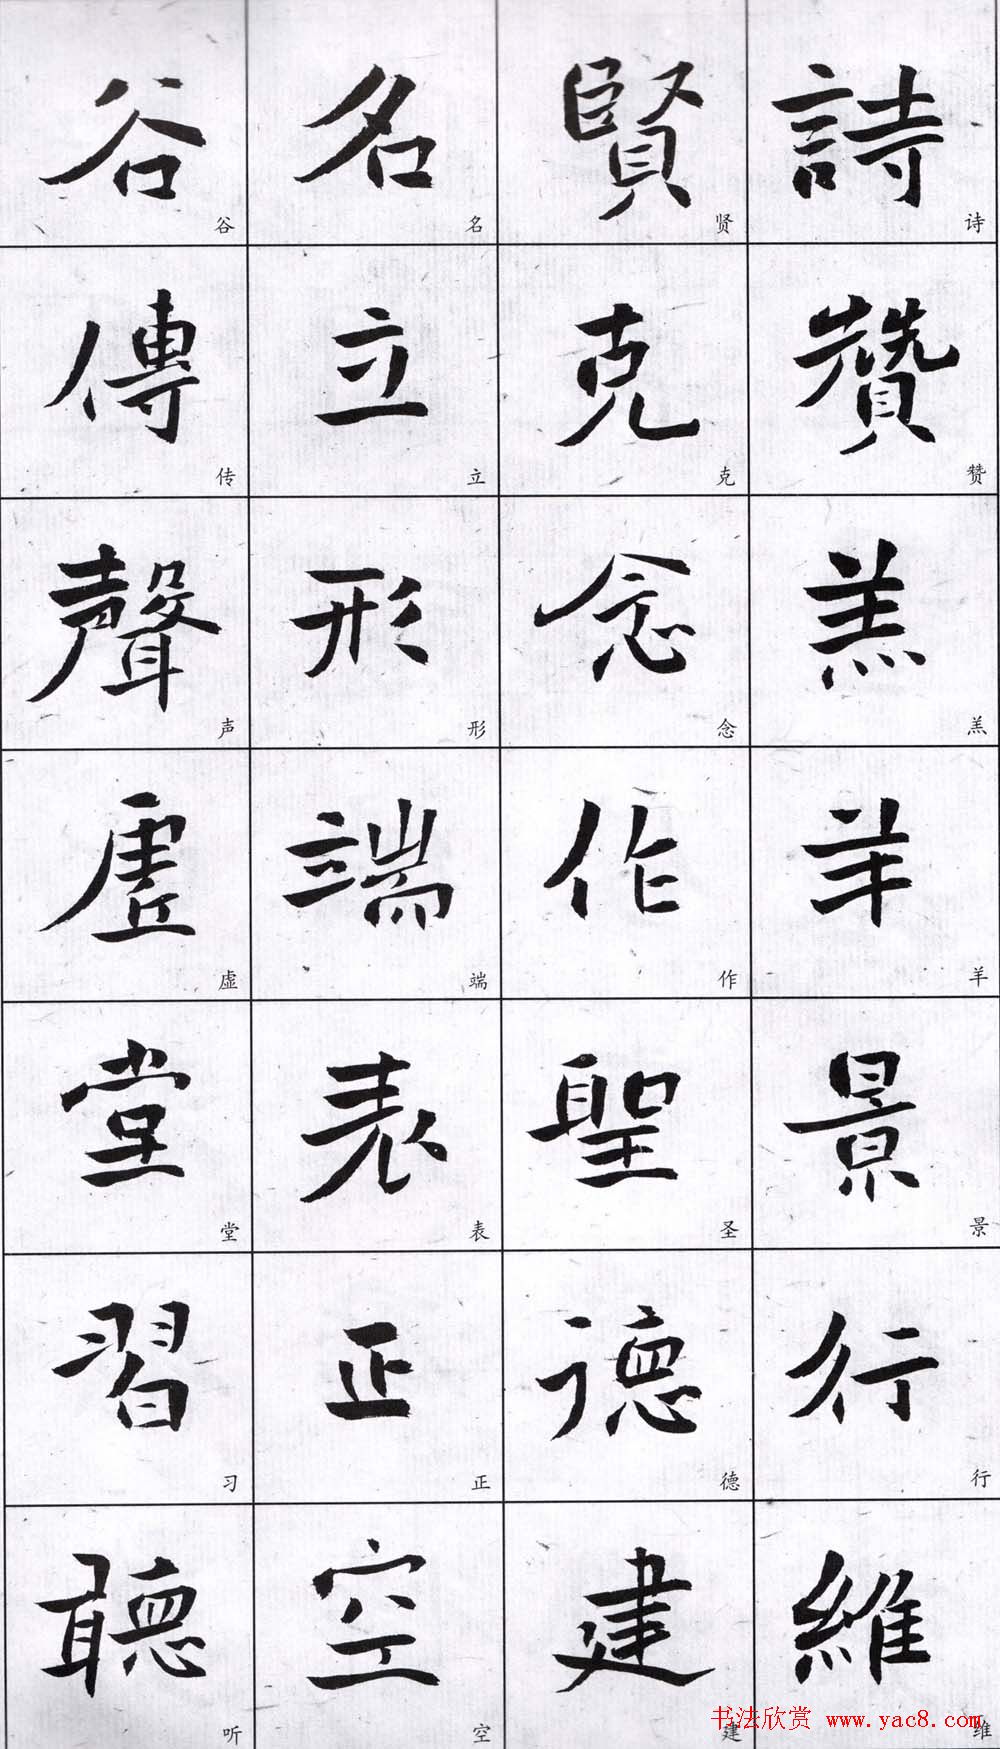 詩贊羔羊景行維
诗赞羔羊景行维
賢克念作聖德建
贤克念作圣德建
名立形端表正空
名立形端表正空
谷傳聲虛堂習聽
谷传声虚堂习听
书法欣赏 www.yac8.com